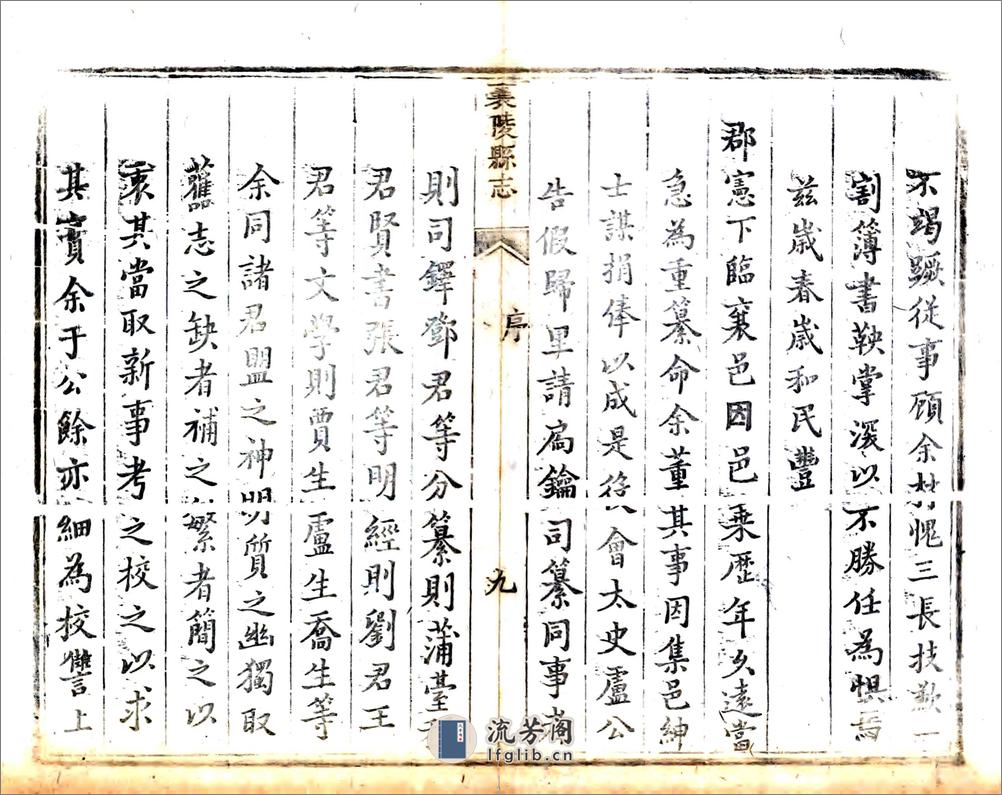 不竭蹶從事顧余材愧三長技歉一
割簿書鞅掌深以不勝任為懼
茲歲春歲和民豐
郡憲下臨襄邑因邑乘歷年久遠當
急為重纂命余董其事因集邑紳
士謀捐俸以成是役會太史盧公
告假歸里請為鑰司纂同事者
襄陵縣志
序
九
則司鐸鄧君等分纂則蒲臺王
君賢書張君等明經則劉君王
君等文學則賈生盧生喬生等
余同諸君盟之神明質之幽獨取
舊志之缺者補之繁者簡之以
衷其當取新事考之校之以求
其實余于公餘亦細為校讐上
流芳閣
lfglib.cn